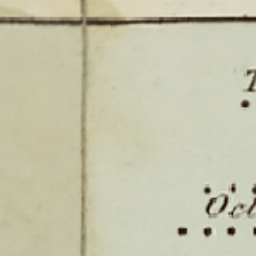 T
Oct